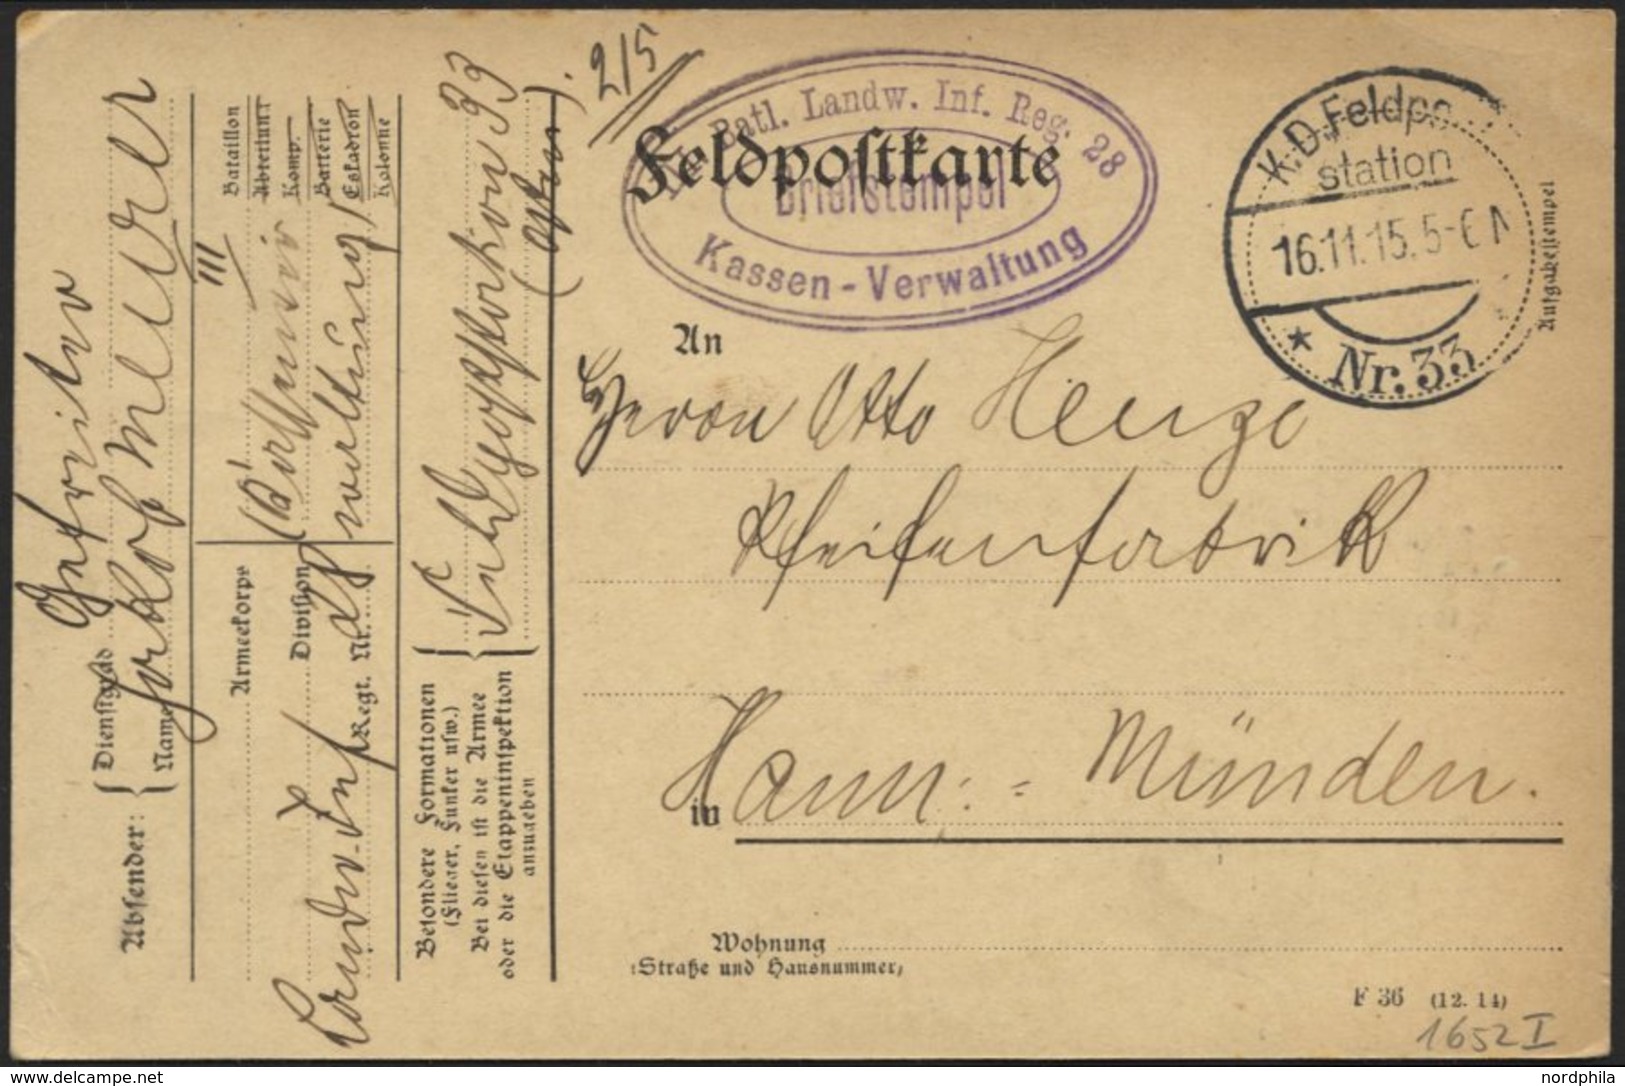 215
Feldpostkarte
Batl. Landw. Inf. Reg. 28
Briefstempel
Kassen-Verwaltung
K.D.Feldpo
station
16.11.15.5-6 N
* Nr. 33
Aufgabestempel
An
Herrn Otto Henze
Pfeifenfabrik
in Hann:= Münden.
Wohnung
(Straße und Hausnummer)
F 36 (12. 14)
1652 I
Absender:
Dienstgrad Gefreiter
Name Jakob
III Bataillon
Abteilung
Komp.
Batterie
Eskadron
Kolonne
Armeekorps
Division
Regt. Nr. 28
Landw. Inf.
Besondere Formationen
(Flieger, Funker usw.)
Bei diesen ist die Armee
oder die Etappeninspektion
anzugeben
Feldpoststation 33
(Osten).
www.delcampe.net
nordphila